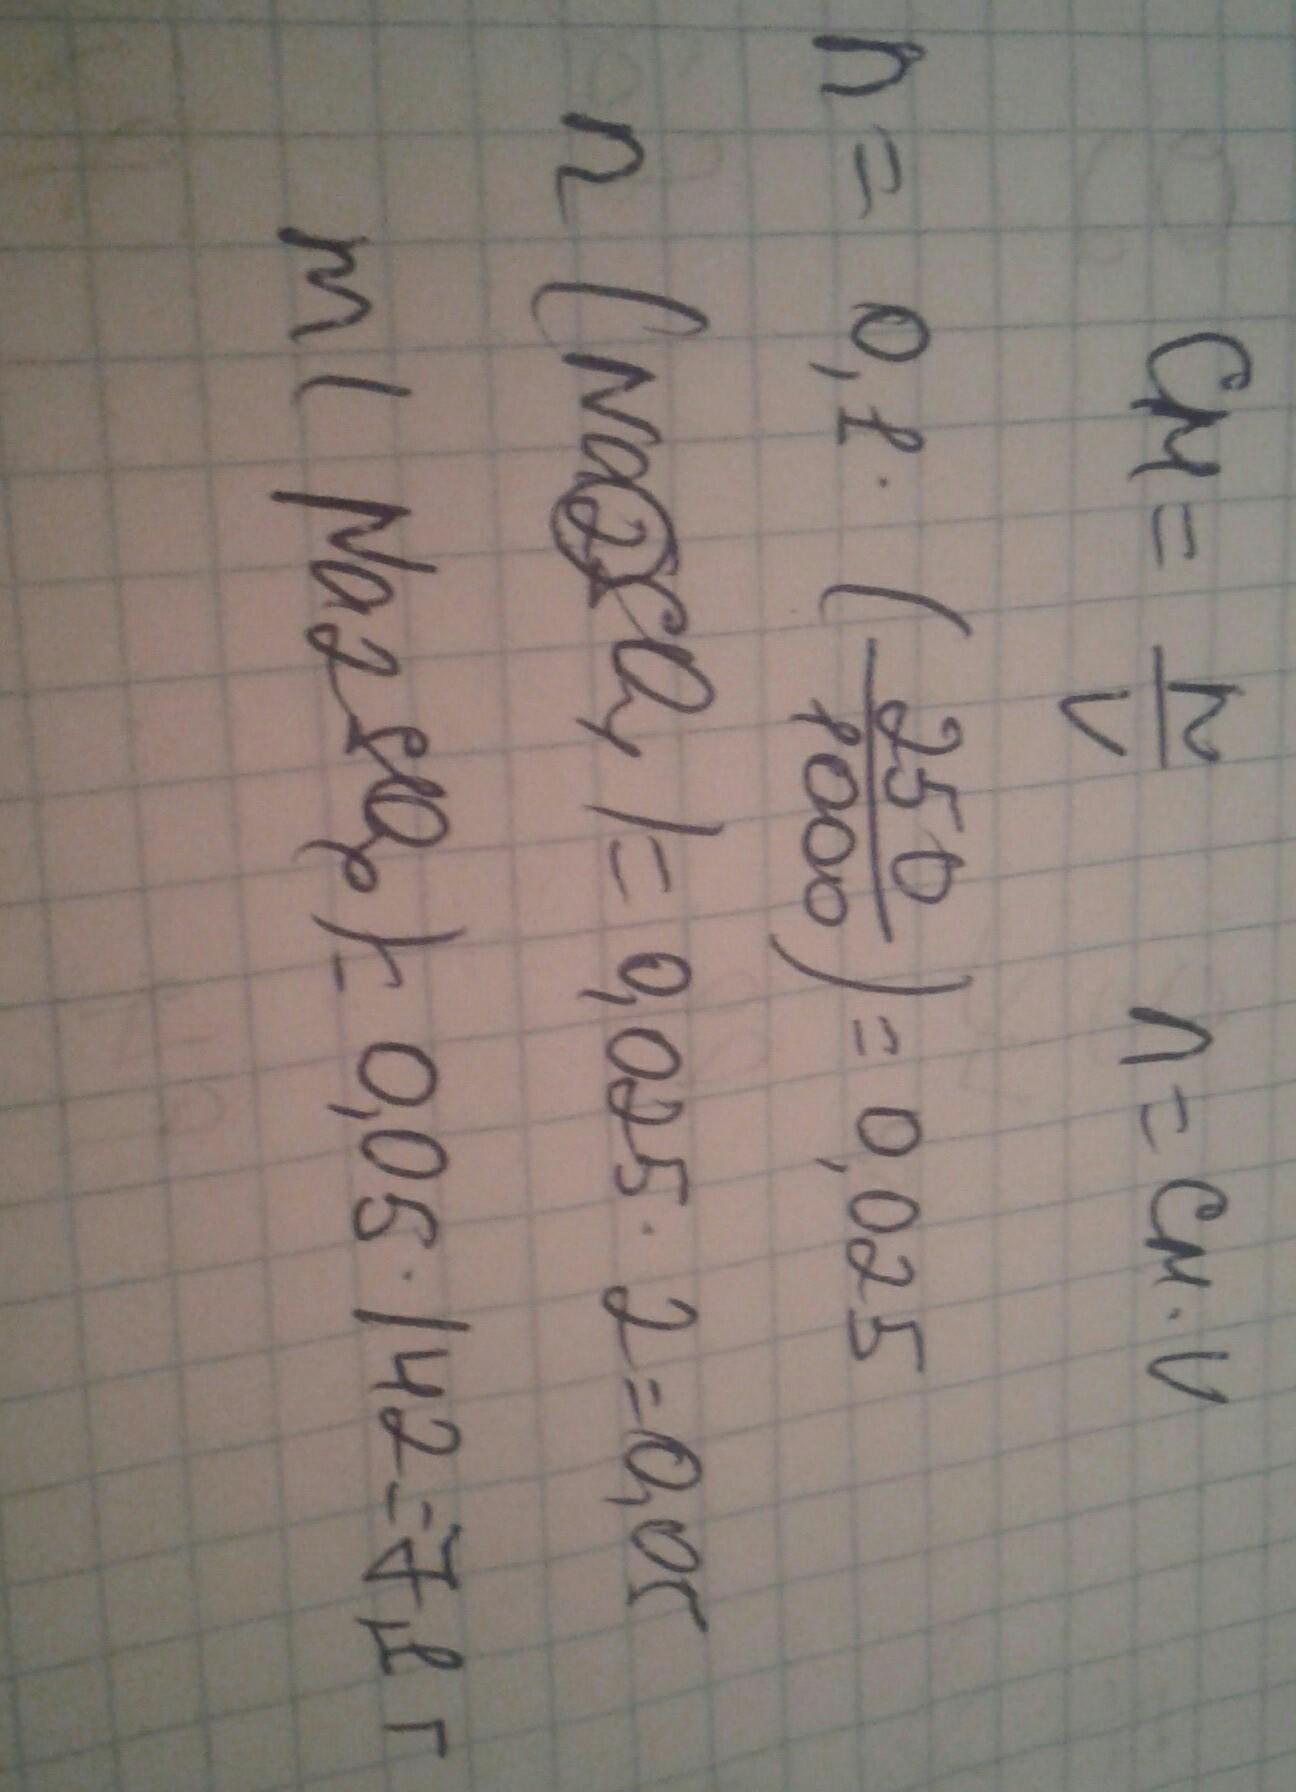 См = n/V n = См · V
n = 0,1 · (250/1000) = 0,025
n (Na2SO4) = 0,025 · 2 = 0,05
m (Na2SO4) = 0,05 · 142 = 7,1 г